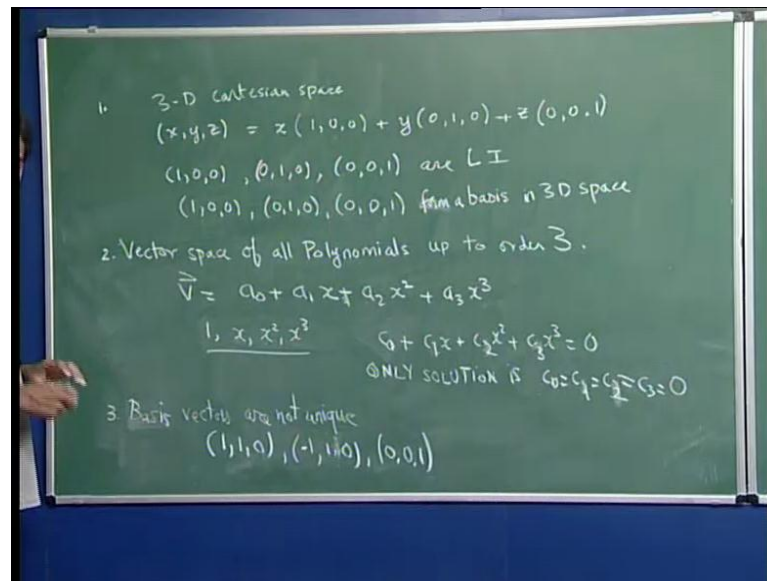 1. 3-D cartesian space
(x,y,z) = x(1,0,0) + y(0,1,0) + z(0,0,1)
(1,0,0), (0,1,0), (0,0,1) are LI
(1,0,0), (0,1,0), (0,0,1) form a basis in 3D space
2. Vector space of all Polynomials up to order 3.
V⃗ = a₀ + a₁x + a₂x² + a₃x³
1, x, x², x³
c₀ + c₁x + c₂x² + c₃x³ = 0
ONLY SOLUTION IS c₀=c₁=c₂=c₃=0
3. Basis vectors are not unique
(1,1,0), (-1,1,0), (0,0,1)